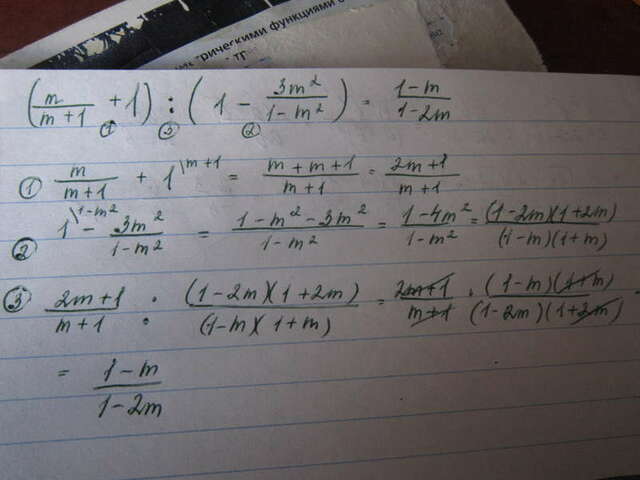 трическими функциями
(m/(m+1) + 1) : (1 - 3m²/(1-m²)) = (1-m)/(1-2m)
① ③ ②
① m/(m+1) + 1\m+1 = (m+m+1)/(m+1) = (2m+1)/(m+1)
② 1\1-m² - 3m²/(1-m²) = (1-m²-3m²)/(1-m²) = (1-4m²)/(1-m²) = (1-2m)(1+2m)/(1-m)(1+m)
③ (2m+1)/(m+1) : (1-2m)(1+2m)/(1-m)(1+m) = (2m+1)/(m+1) · (1-m)(1+m)/(1-2m)(1+2m) ·
= (1-m)/(1-2m)